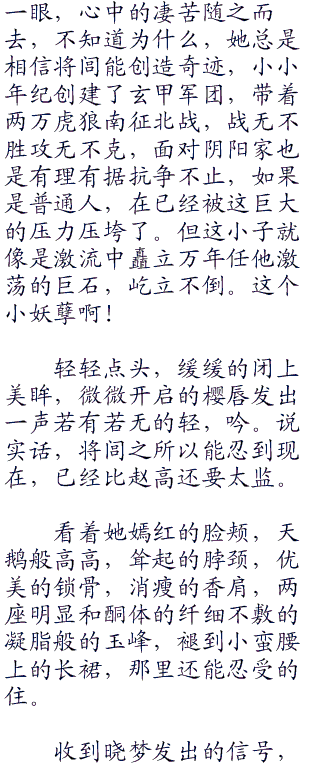 一眼，心中的凄苦随之而
去，不知道为什么，她总是
相信将闾能创造奇迹，小小
年纪创建了玄甲军团，带着
两万虎狼南征北战，战无不
胜攻无不克，面对阴阳家也
是有理有据抗争不止，如果
是普通人，在已经被这巨大
的压力压垮了。但这小子就
像是激流中矗立万年任他激
荡的巨石，屹立不倒。这个
小妖孽啊！
轻轻点头，缓缓的闭上
美眸，微微开启的樱唇发出
一声若有若无的轻，吟。说
实话，将闾之所以能忍到现
在，已经比赵高还要太监。
看着她嫣红的脸颊，天
鹅般高高，耸起的脖颈，优
美的锁骨，消瘦的香肩，两
座明显和酮体的纤细不敷的
凝脂般的玉峰，褪到小蛮腰
上的长裙，那里还能忍受的
住。
收到晓梦发出的信号，